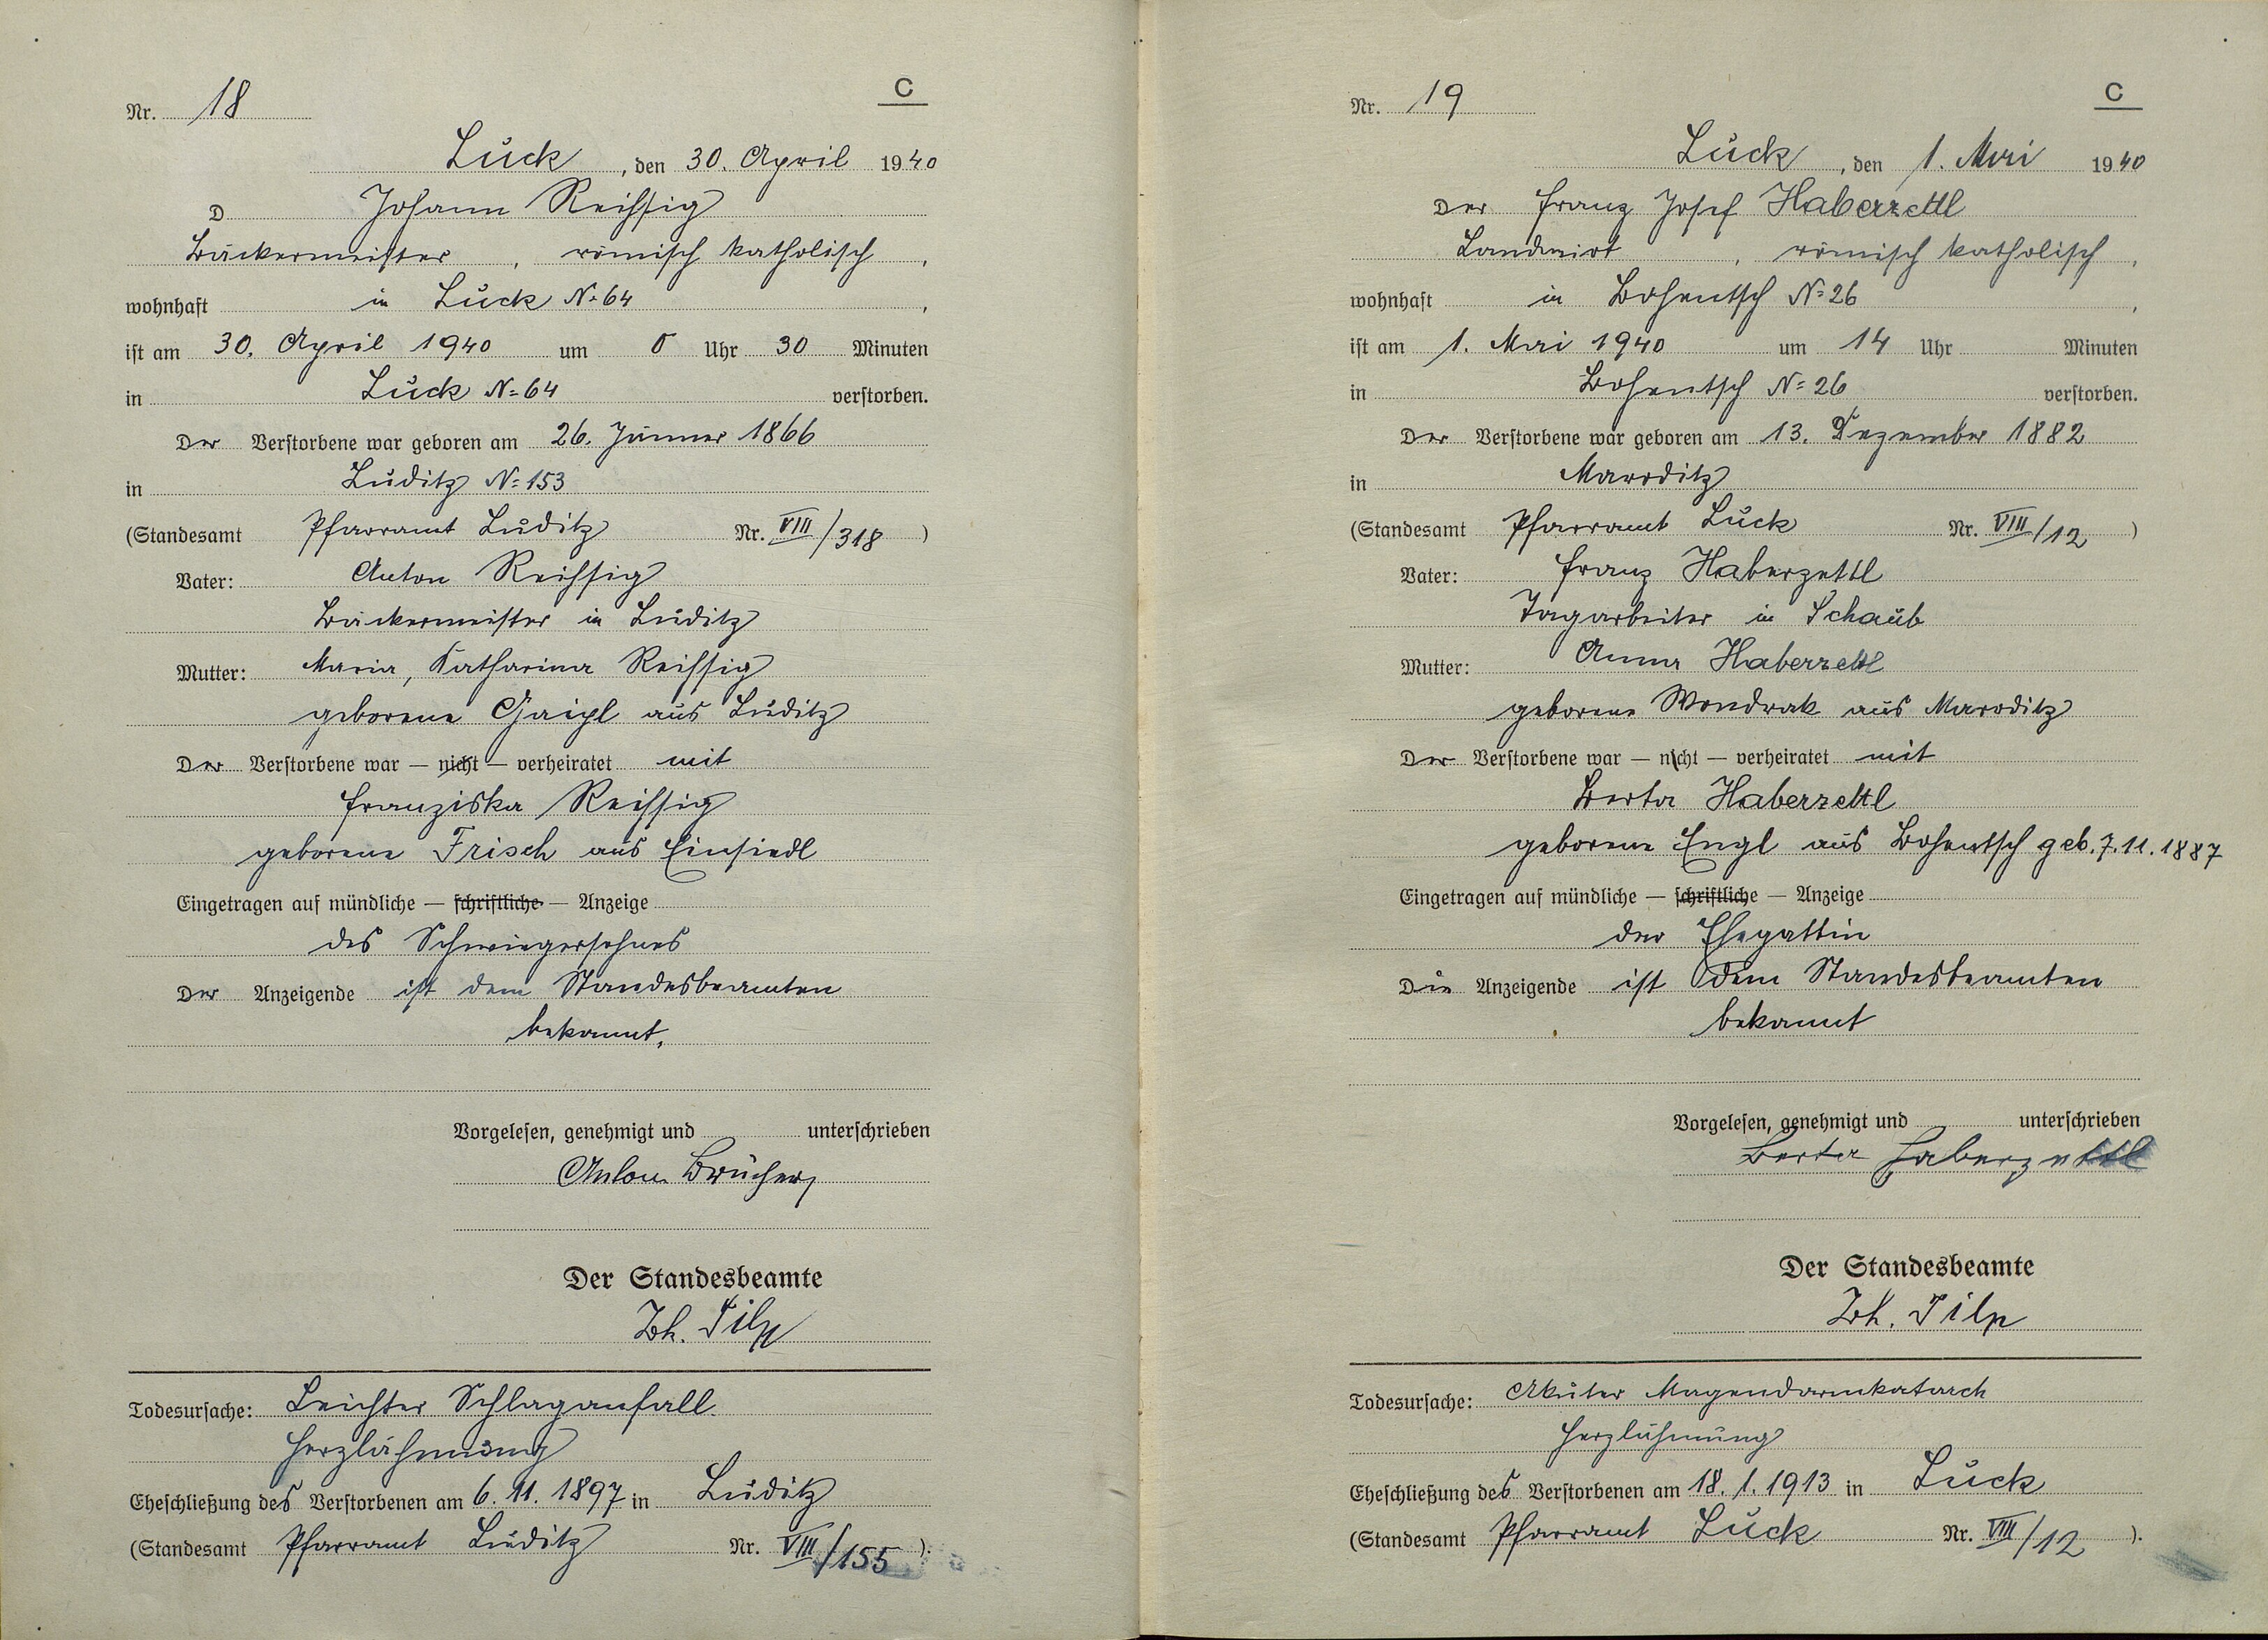 C
Nr. 18
Luck, den 30. April 1940
D Johann Reihsig
Bäckermeister, römisch katholisch,
wohnhaft in Luck No 64,
ist am 30. April 1940 um 0 Uhr 30 Minuten
in Luck No 64 verstorben.
Der Verstorbene war geboren am 26. Jänner 1866
in Luditz No 153
(Standesamt Pfarramt Luditz Nr. VIII/318)
Vater: Anton Reihsig
Bäckermeister in Luditz
Mutter: Maria, Katharina Reihsig
geborene Gaigl aus Luditz
Der Verstorbene war — nicht — verheiratet mit
Franziska Reihsig
geborene Frisch aus Einsiedl
Eingetragen auf mündliche — schriftliche — Anzeige
des Schwiegersohnes
Der Anzeigende ist dem Standesbeamten
bekannt.
Vorgelesen, genehmigt und unterschrieben
Anton
Der Standesbeamte
Joh. Pilp
Todesursache: Leichter Schlaganfall.
Herzlähmung
Eheschließung des Verstorbenen am 6. 11. 1897 in Luditz
(Standesamt Pfarramt Luditz Nr. VIII/155).
C
Nr. 19
Luck, den 1. Mai 1940
Der Franz Josef Haberzettl
Landwirt, römisch katholisch,
wohnhaft in Bohentsch No 26,
ist am 1. Mai 1940 um 14 Uhr Minuten
in Bohentsch No 26 verstorben.
Der Verstorbene war geboren am 13. Dezember 1882
in Maroditz
(Standesamt Pfarramt Luck Nr. VIII/12)
Vater: Franz Haberzettl
Tagarbeiter in Schaub
Mutter: Anna Haberzettl
geborene Wondrak aus Maroditz
Der Verstorbene war — nicht — verheiratet mit
Berta Haberzettl
geborene Engl aus Bohentsch geb. 7. 11. 1887
Eingetragen auf mündliche — schriftliche — Anzeige
der Ehegattin
Die Anzeigende ist dem Standesbeamten
bekannt
Vorgelesen, genehmigt und unterschrieben
Berta Haberzettl
Der Standesbeamte
Joh. Pilp
Todesursache: Akuter Magendarmkatarch
Herzlähmung
Eheschließung des Verstorbenen am 18. 1. 1913 in Luck
(Standesamt Pfarramt Luck Nr. VIII/12).